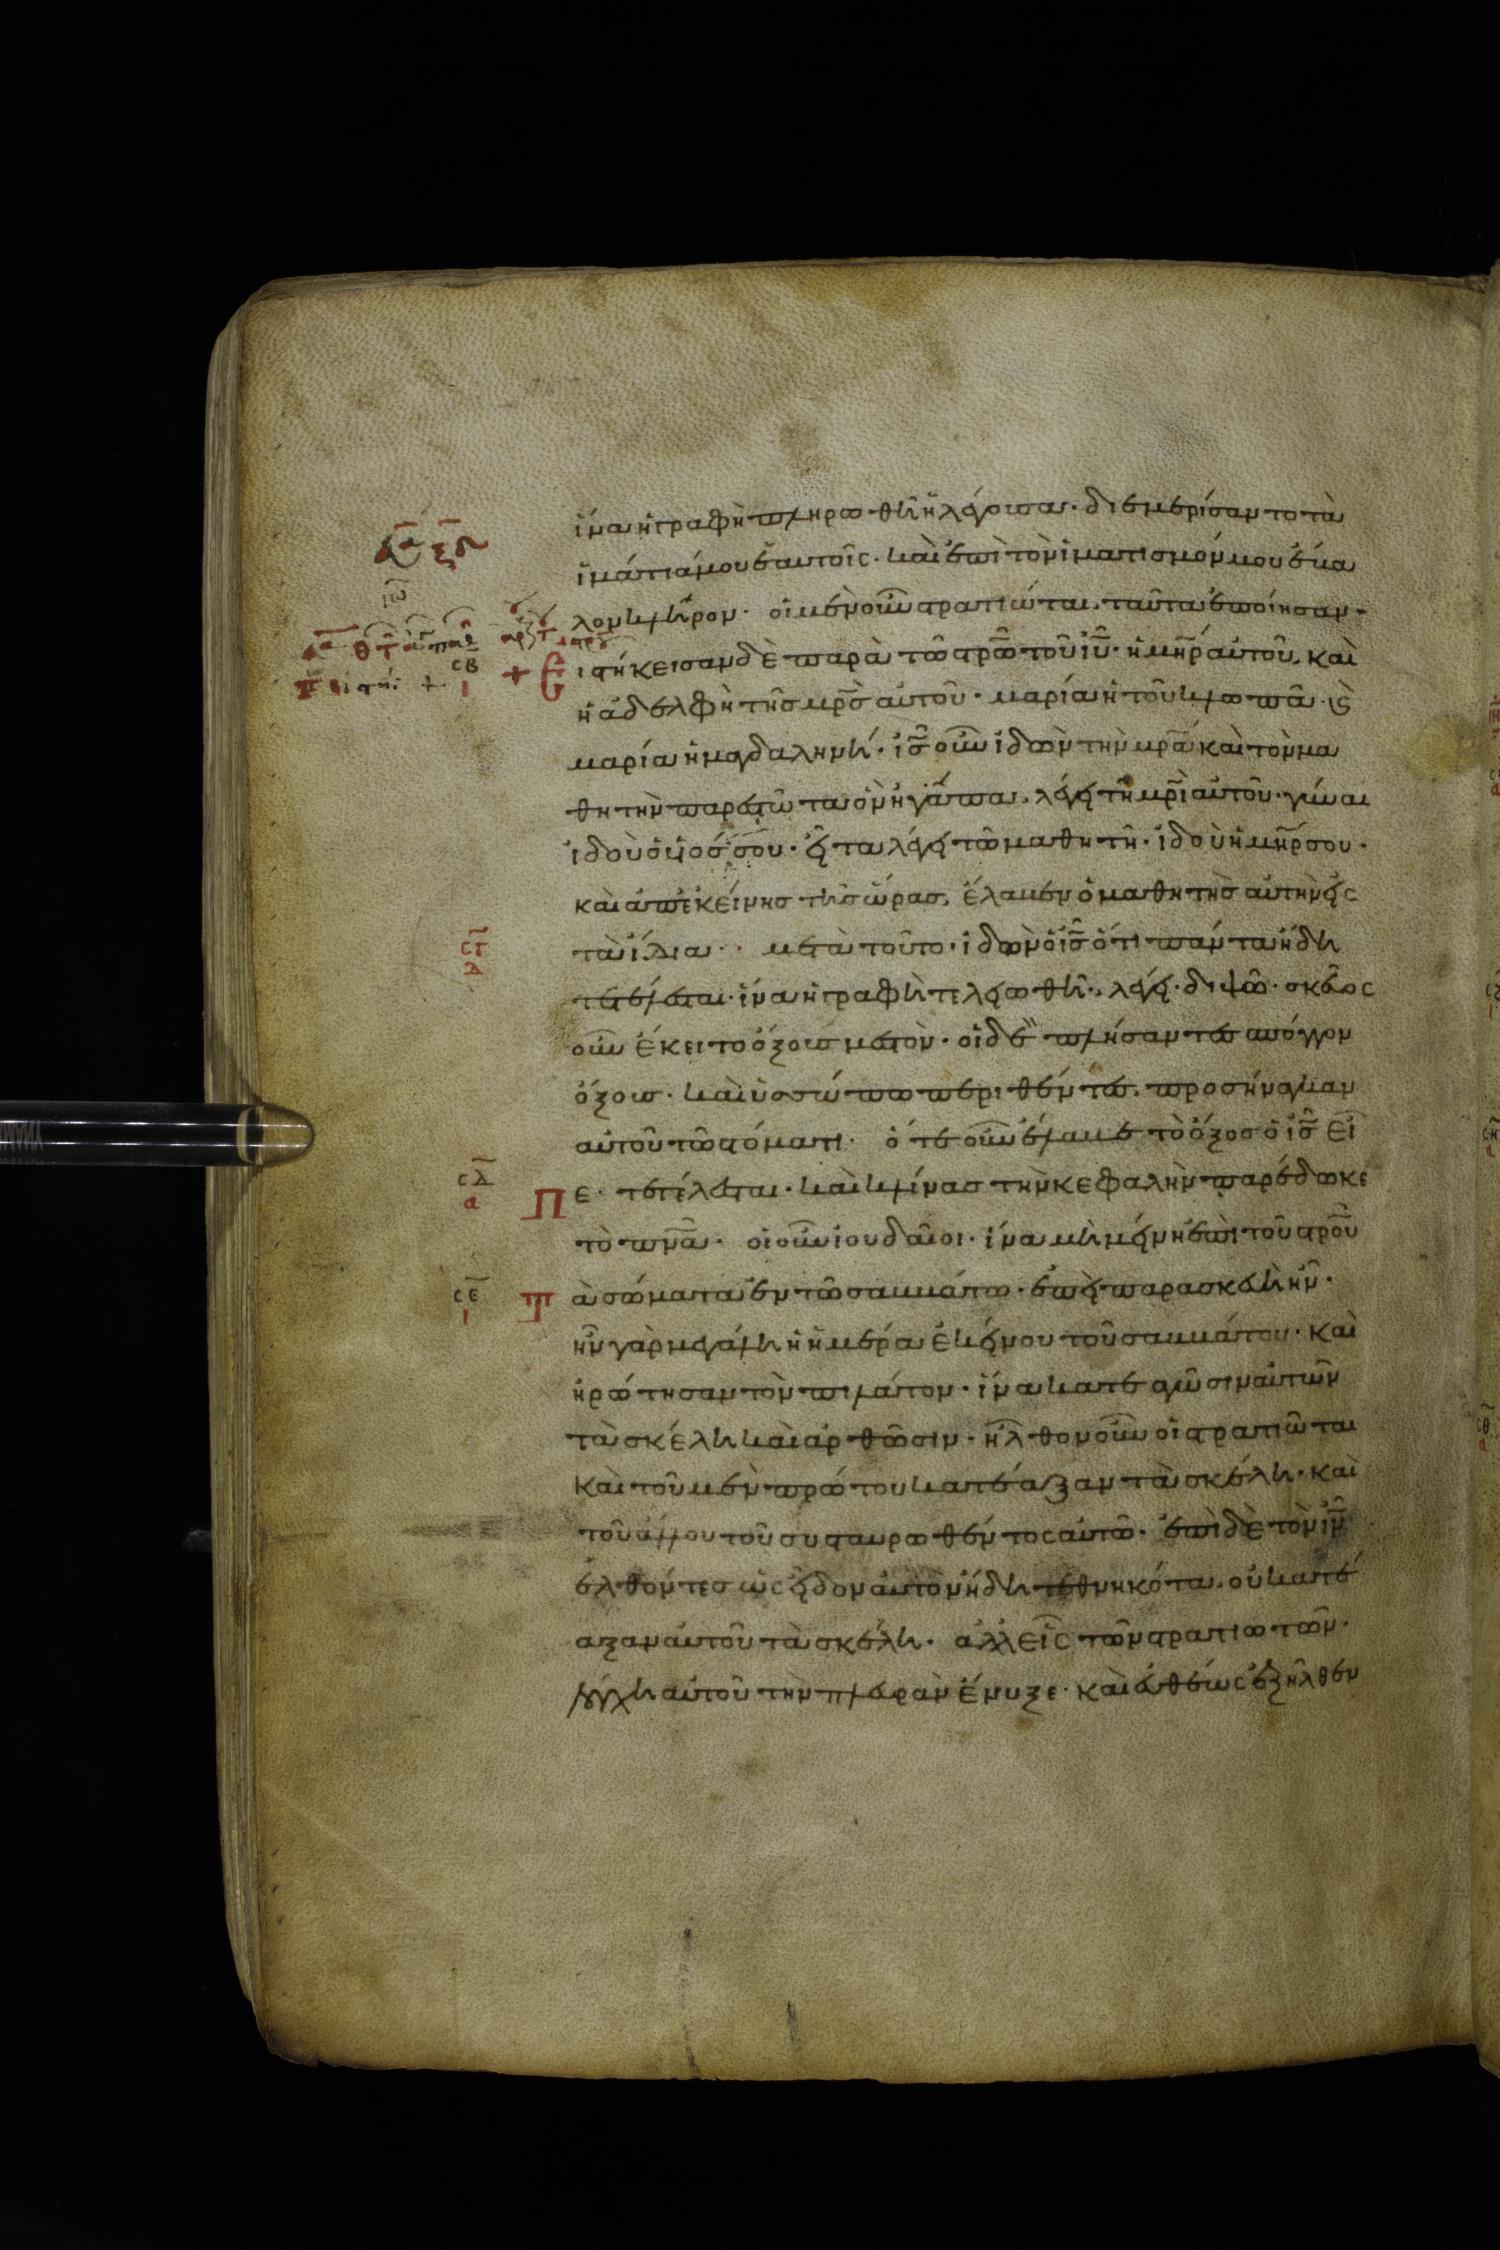 ἵνα ἡ γραφὴ πληρωθῆ ἡ λέγουσα· διεμερίσαντο τὰ
ἱμάτιά μου ἑαυτοῖς· καὶ ἐπὶ τὸν ἱματισμόν μου ἔβα
λον κλῆρον· οἱ μὲν οὖν στρατιῶται, ταῦτα ἐποίησαν·
ιστήκεισαν δὲ παρὰ τῶ στρῶ τοῦ ἰῦ· ἡ μηρ αὐτοῦ, καὶ
ἡ ἀδελφὴ τῆς μρς αὐτοῦ· μαρία ἡ τοῦ κλωπᾶ· ϗ
μαρία ἡ μαγδαληνή· ἰς οὖν ἰδὼν τὴν μρα καὶ τὸν μα
θητὴν παρεστῶτα ὃν ἠγάπα, λέγει τῆ μρι αὐτοῦ· γύναι
ἰδοὺ ὁ υἱός σου· εἶτα λέγει τῶ μαθητῆ· ἰδοὺ ἡ μηρ σου·
καὶ ἀπ' ἐκείνης τῆς ὥρας, ἔλαβεν ὁ μαθητὴς αὐτὴν εἰς
τὰ ἴδια· μετὰ τοῦτο· ἰδὼν ὁ ἰς ὅτι πάντα ἤδη
τετέλεσται· ἵνα ἡ γραφὴ τελειωθῆ· λέγει· διψῶ· σκεῦος
οὖν ἔκειτο ὄξους μεστὸν· οἱ δὲ πλήσαντες σπόγγον
ὄξους· καὶ ὑσσώπω περιθέντες, προσήνεγκαν
αὐτοῦ τῶ στόματι· ὅτε οὖν ἔλαβε τὸ ὄξος ὁ ἰς εἶ
πε· τετέλεσται· καὶ κλίνας τὴν κεφαλὴν παρέδωκε
τὸ πνα· οἱ οὖν ἰουδαῖοι· ἵνα μὴ μείνη ἐπὶ τοῦ στροῦ
τὰ σώματα ἐν τῶ σαββάτω· ἐπεὶ παρασκευὴ ἦν·
ἦν γὰρ μεγάλη ἡ ἡμέρα ἐκείνου τοῦ σαββάτου· καὶ
ἠρώτησαν τὸν πιλάτον· ἵνα κατεαγῶσιν αὐτῶν
τὰ σκέλη καὶ ἀρθῶσιν· ἦλθον οὖν οἱ στρατιῶται
καὶ τοῦ μὲν πρώτου κατέαξαν τὰ σκέλη· καὶ
τοῦ ἄλλου τοῦ συσταυρωθέντος αὐτῶ· ἐπὶ δὲ τὸν ἰν
ἐλθόντες ὡς εἶδον αὐτὸν ἤδη τεθνηκότα, οὐ κατέ
αξαν αὐτοῦ τὰ σκέλη· ἀλλ εἷς τῶν στρατιωτῶν·
λόγχη αὐτοῦ τὴν πλευρὰν ἔνυξε· καὶ εὐθέως ἐξῆλθεν
σβ
ι
σγ
δ
σδ
α
σε
ι